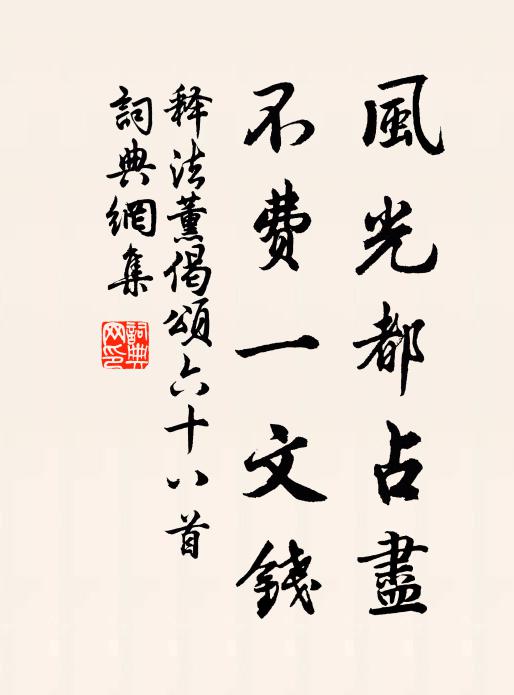 風光都占盡
不費一文錢
释法薰偈頌六十八首
詞典網集
詞典網印